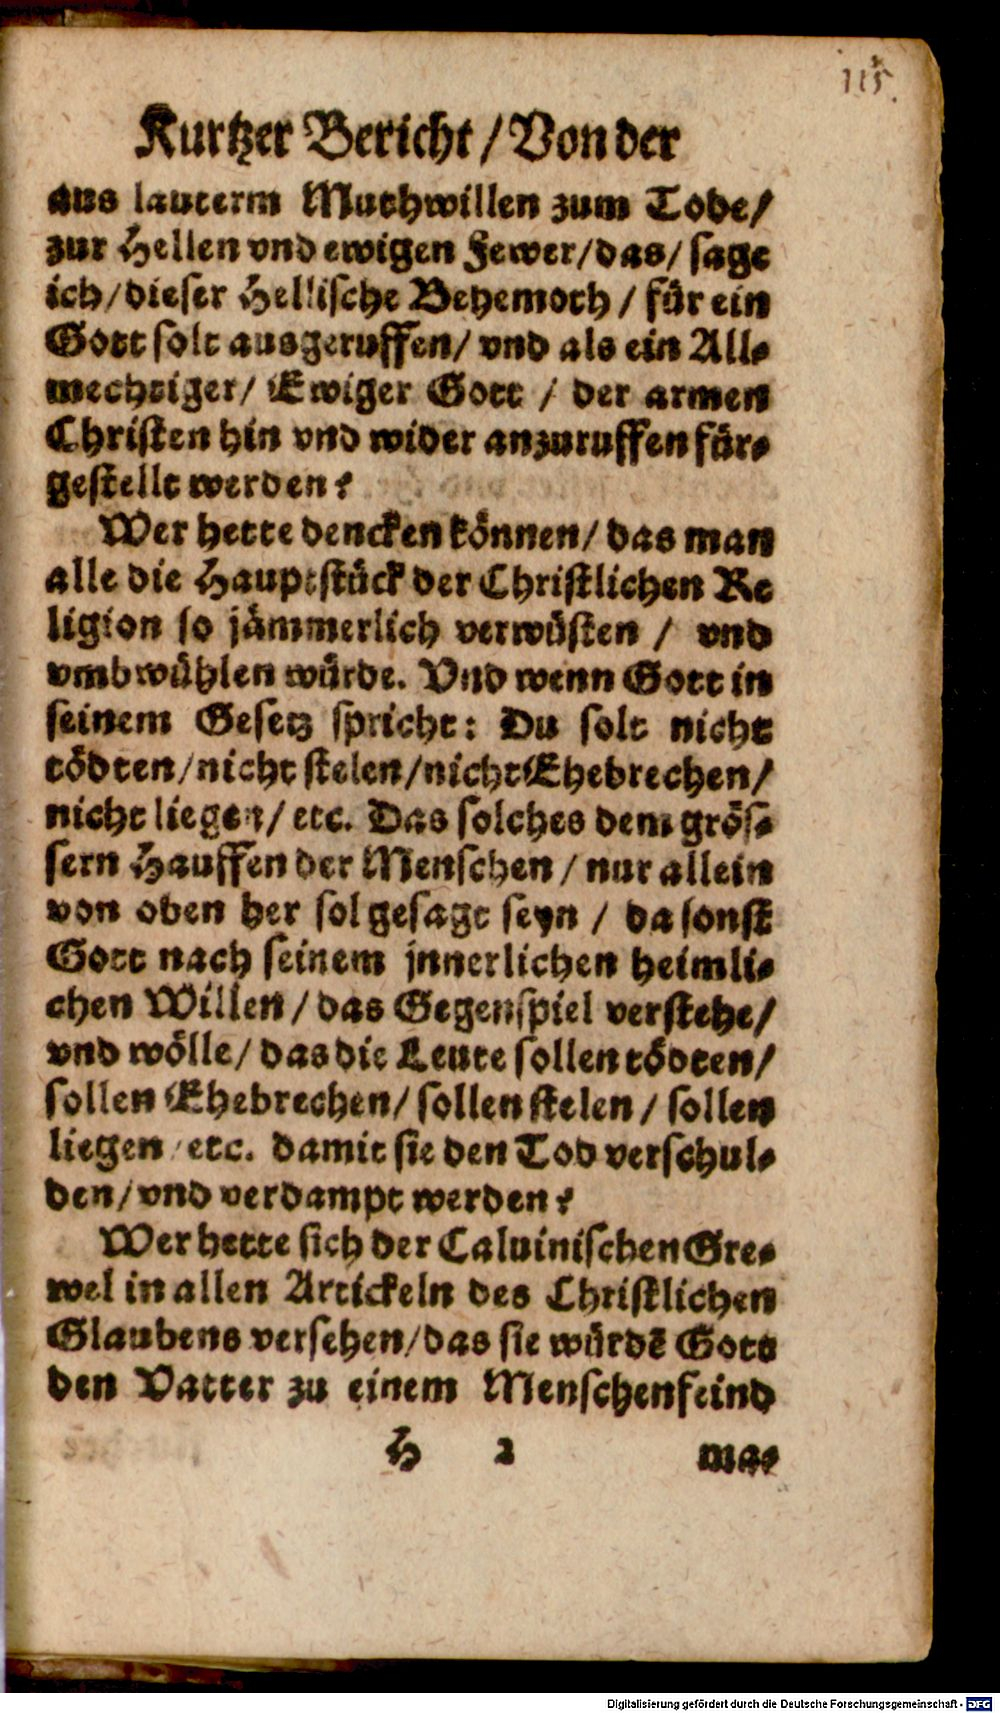 115.
Kurtzer Bericht / Von der
aus lauterm Muthwillen zum Tode /
zur Hellen vnd ewigen Fewer / das / sage
ich / dieser Hellische Behemoth / für ein
Gott solt ausgeruffen / vnd als ein All-
mechtiger / Ewiger Gott / der armen
Christen hin vnd wider anzuruffen für-
gestellt werden?
Wer hette dencken können / das man
alle die Hauptstück der Christlichen Re
ligion so jämmerlich verwüsten / vnd
vmbwühlen würde. Vnd wenn Gott in
seinem Gesetz spricht: Du solt nicht
tödten / nicht stelen / nicht Ehebrechen /
nicht liegen / etc. Das solches dem grös-
sern Hauffen der Menschen / nur allein
von oben her sol gesagt seyn / da sonst
Gott nach seinem jnnerlichen heimli-
chen Willen / das Gegenspiel verstehe /
vnd wölle / das die Leute sollen tödten /
sollen Ehebrechen / sollen stelen / sollen
liegen / etc. damit sie den Tod verschul-
den / vnd verdampt werden?
Wer hette sich der Caluinischen Gre-
wel in allen Artickeln des Christlichen
Glaubens versehen / das sie würdē Gott
den Vatter zu einem Menschenfeind
H 2 ma-
Digitalisierung gefördert durch die Deutsche Forschungsgemeinschaft - DFG